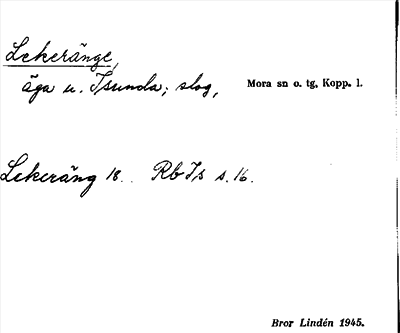 Lekeränge,
äga u. Isunda; slog, Mora sn o. tg, Kopp. l.
Lekeräng 18.. Rb Is s. 16.
Bror Lindén 1945.